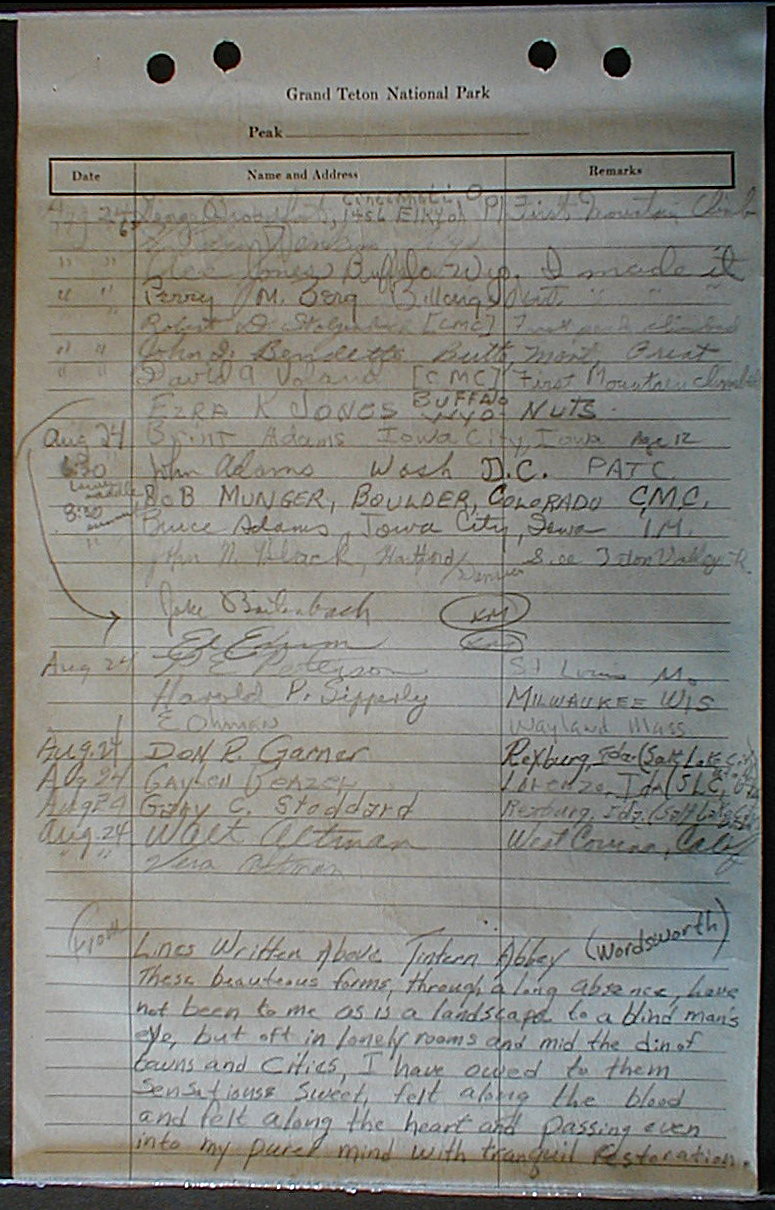 Grand Teton National Park
Peak
Date Name and Address Remarks
Cincinnati, O
Aug 24 1456 First Mountain Climb
" " Jones Buffalo Wyo. I made it
" " Perry M. Berg Billings Mont " " "
Robert [CMC] First peak climbed
" " John J. Bendetti Butte Mont, Great
" " David A Voland [CMC] First Mountain climbed
EZRA K JONES BUFFALO WYO NUTS
Aug 24 Brint Adams Iowa City, Iowa Age 12
6:30 John Adams Wash D.C. PATC
saddle BOB MUNGER, BOULDER, COLORADO C.M.C.
8:30 summit Bruce Adams, Iowa City, Iowa I.M.
" John N. Black, Hartford/Denver
Jake Breitenbach
Aug 24 P E Patterson St Louis Mo
Harold P. Sipperly MILWAUKEE WIS
E Ohman Wayland Mass
Aug. 24 DON R. Garner Rexburg, Ida. (Salt Lake City)
Aug 24 GAYLEN Lorenzo, Ida (SLC,
Aug 24 Gary C. Stoddard Rexburg, Ida. (Salt Lake
Aug. 24 Walt Altman West Covina, Calif
" " Vera Altman
(From Lines Written Above Tintern Abbey (Wordsworth)
These beauteous forms, through a long absence, have
not been to me as is a landscape to a blind man's
eye, but oft in lonely rooms and mid the din of
towns and Cities, I have owed to them
Sensations Sweet, felt along the blood
and felt along the heart and passing even
into my purer mind with tranquil Restoration.